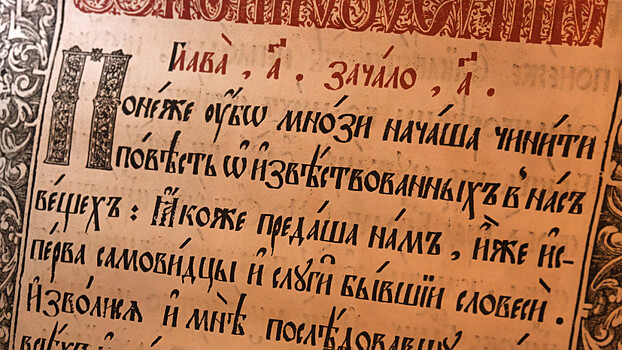 Глава̀ , а҃ . зача́ло , а҃ .
Поне́же ᲂу҆́бѡ мно́зи нача́ша чини́ти
по́вѣсть ѡ҆ и҆звѣ́ствованныхъ въ на́съ
ве́щехъ : ꙗ҆́коже преда́ша на́мъ , и҆̀же и҆с-
пе́рва самови́дцы и҆ слꙋги̑ бы́вшїи словесѝ .
И҆зво́лисѧ и҆ мнѣ̀ послѣ́довавшꙋ